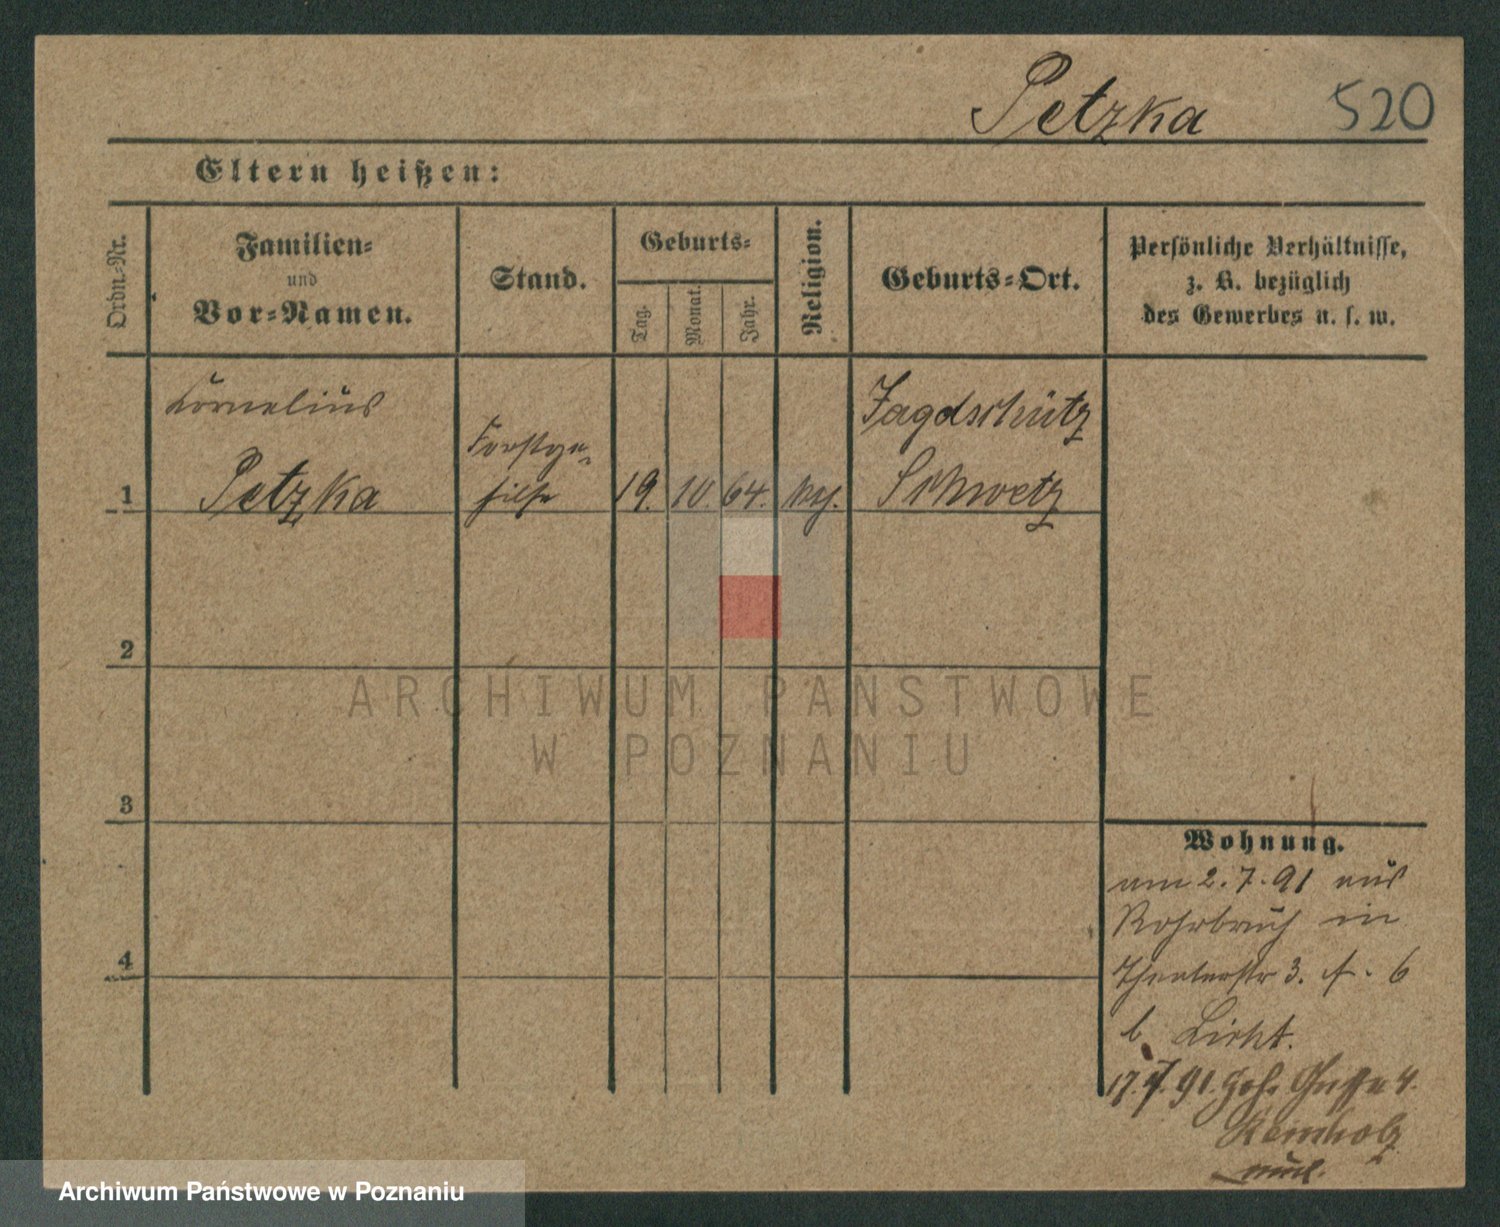 Petzka 520
Eltern heißen:
Ordn.-Nr.
Familien-
und
Vor-Namen.
Stand.
Geburts-
Tag.
Monat.
Jahr.
Religion.
Geburts-Ort.
Persönliche Verhältnisse,
z. B. bezüglich
des Gewerbes u. s. w.
Cornelius
Petzka
Forstge-
hilfe
1
19. 10. 64.
Jagdschütz
Schwetz
2
3
4
Wohnung.
am 2. 7. 91 aus
Rohrbruch in
Theaterstr 3. 6
b. Licht.
17. 7. 91.
ARCHIWUM PAŃSTWOWE
W POZNANIU
Archiwum Państwowe w Poznaniu